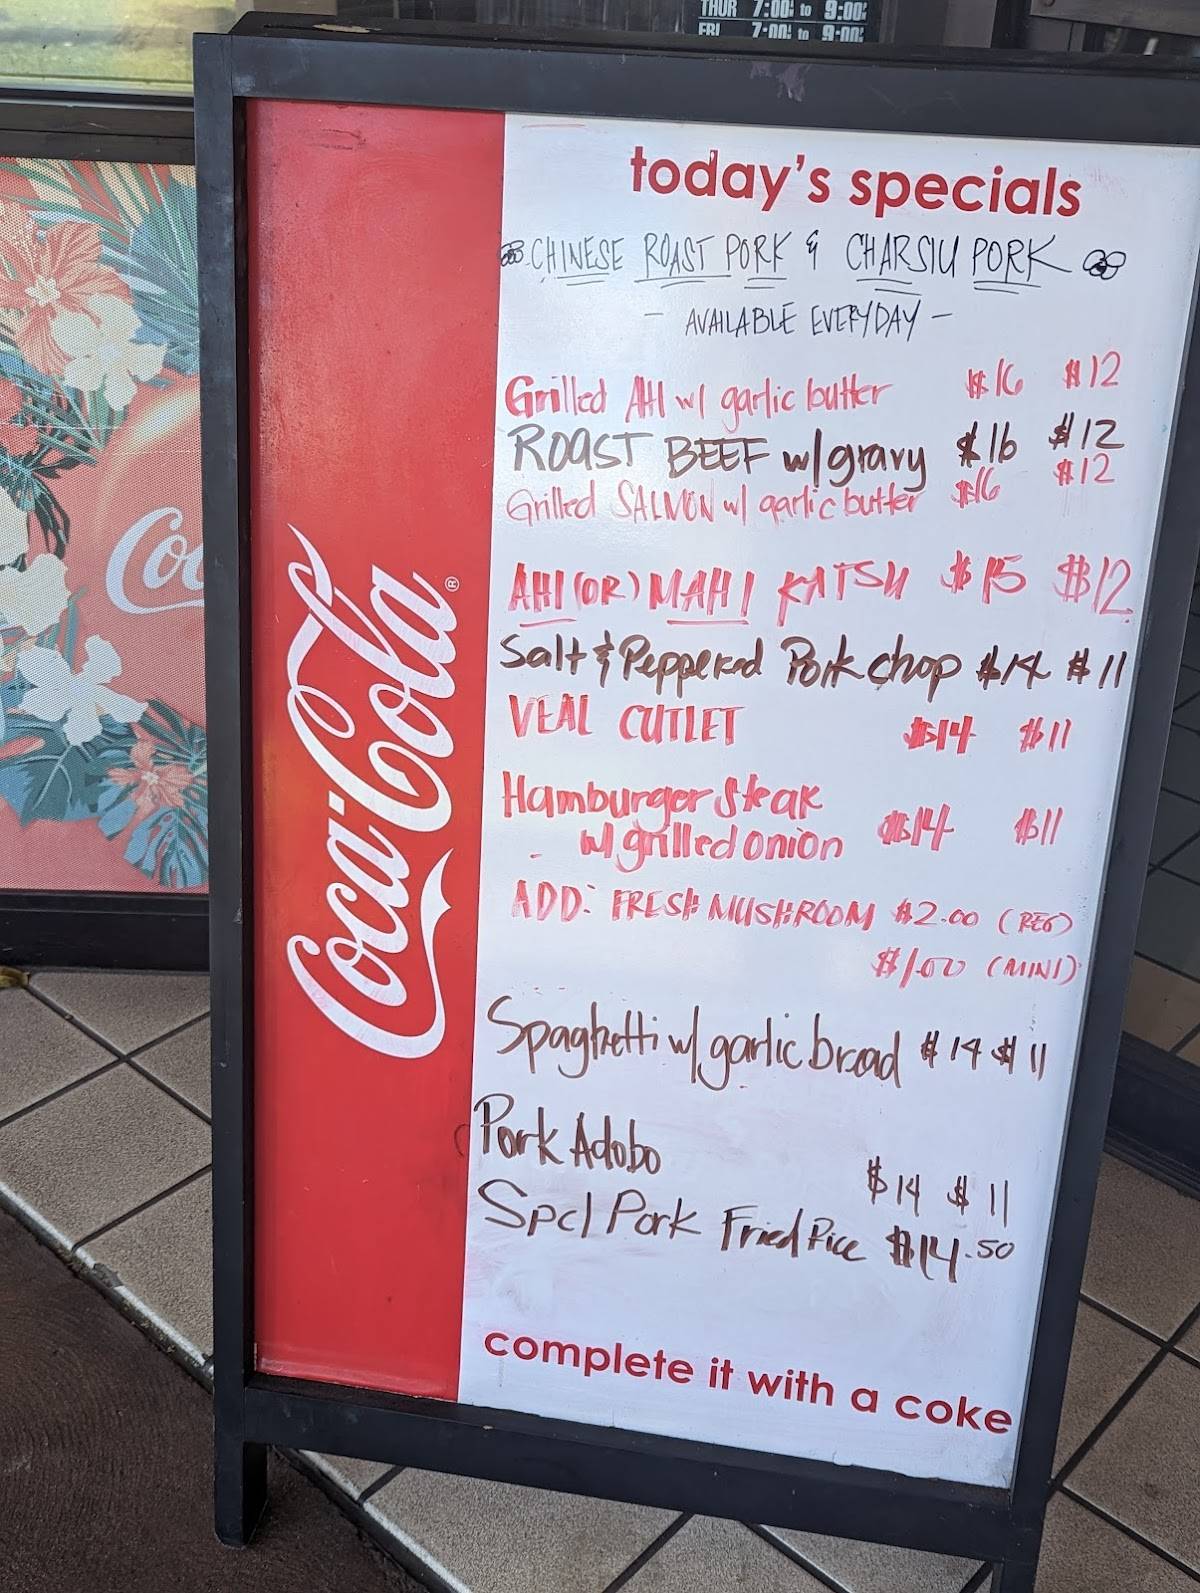 THUR 7:00 to 9:00
FRI 7:00 to 9:00
today's specials
CHINESE ROAST PORK & CHARSIU PORK
- AVAILABLE EVERYDAY -
Grilled AHI w/ garlic butter $16 $12
ROAST BEEF w/gravy $16 $12
Grilled SALMON w/ garlic butter $16 $12
AHI (OR) MAHI KATSU $15 $12
Salt & Peppered Pork chop $14 $11
VEAL CUTLET $14 $11
Hamburger Steak
w/ grilled onion $14 $11
ADD: FRESH MUSHROOM $2.00 (REG)
$1.00 (MINI)
Spaghetti w/ garlic bread $14 $11
Pork Adobo $14 $11
Spcl Pork Fried Rice $14.50
complete it with a coke
Coca-Cola®
Co